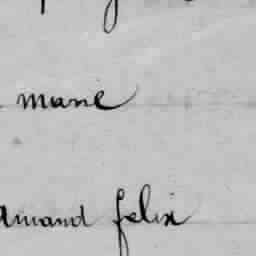 marie
amand felix